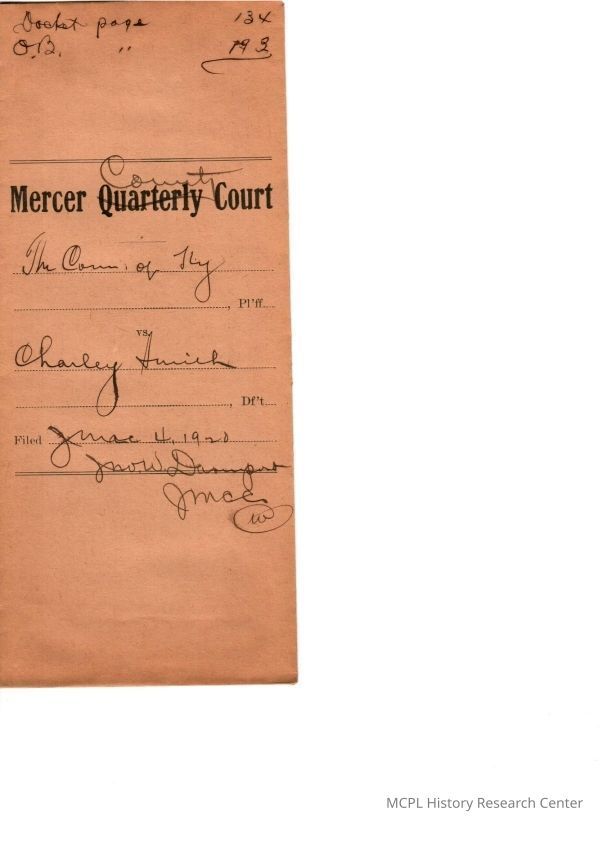 Docket page 134
O.B. " 193
County
Mercer Quarterly Court
The Com. of Ky
, Pl'ff.
vs.
Charley
, Df't.
Filed Mar 4, 1920
Jno. W. Davenport
JMCC
W
MCPL History Research Center